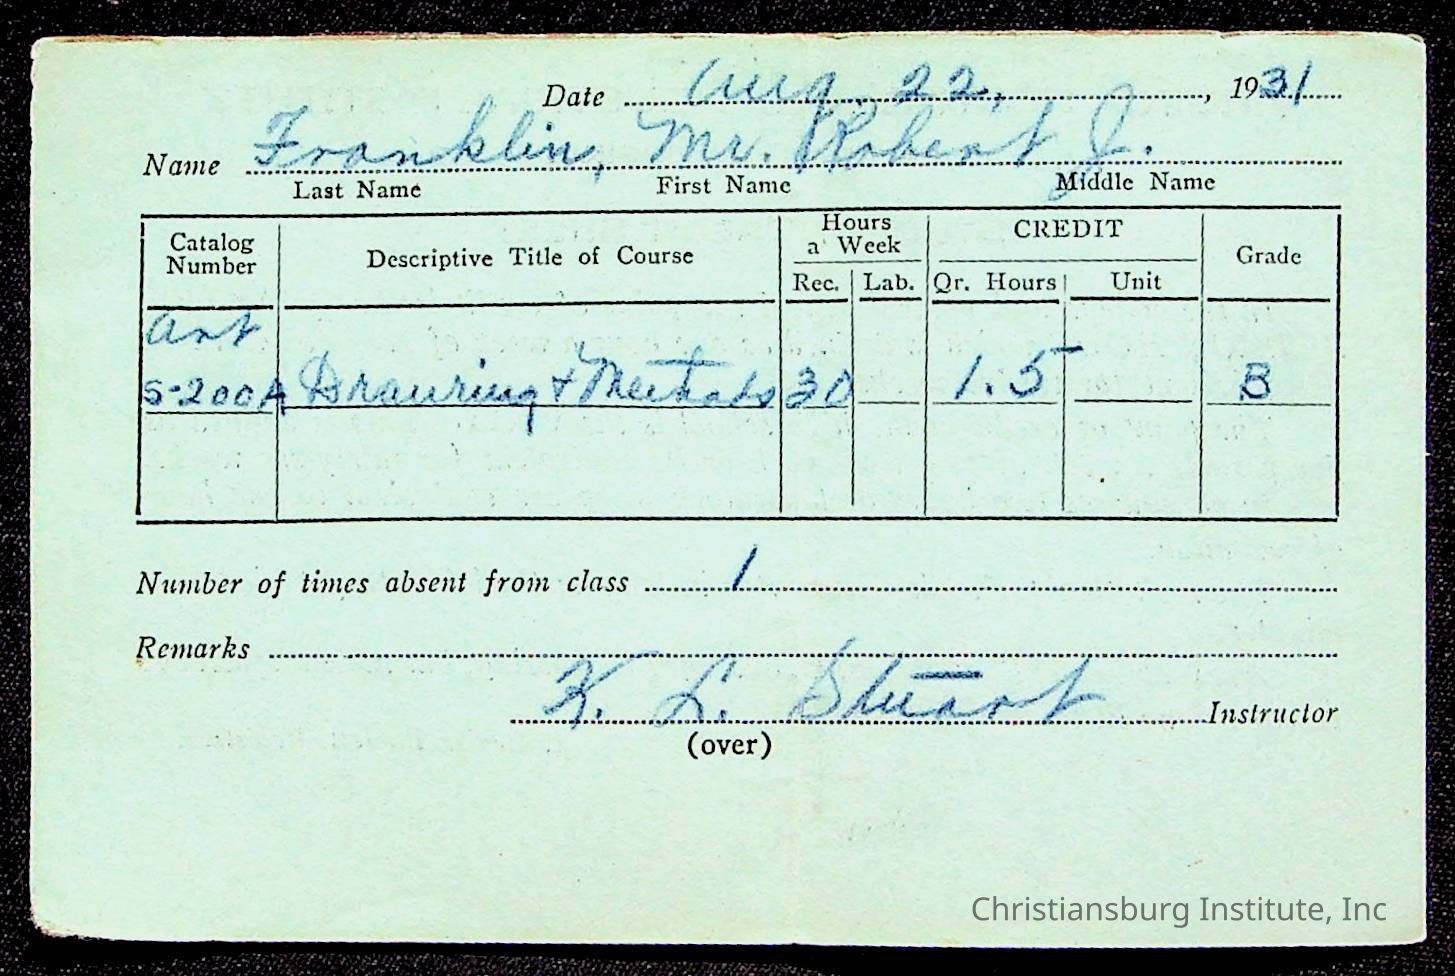 Date Aug. 22, , 1931
Name Franklin, Mr. Robert J.
Last Name First Name Middle Name
Catalog Number Descriptive Title of Course Hours a Week Rec. Lab. CREDIT Qr. Hours Unit Grade
Art
S-200A Drawing + Methods 30 1.5 B
Number of times absent from class 1
Remarks
K. L. Stuart Instructor
(over)
Christiansburg Institute, Inc